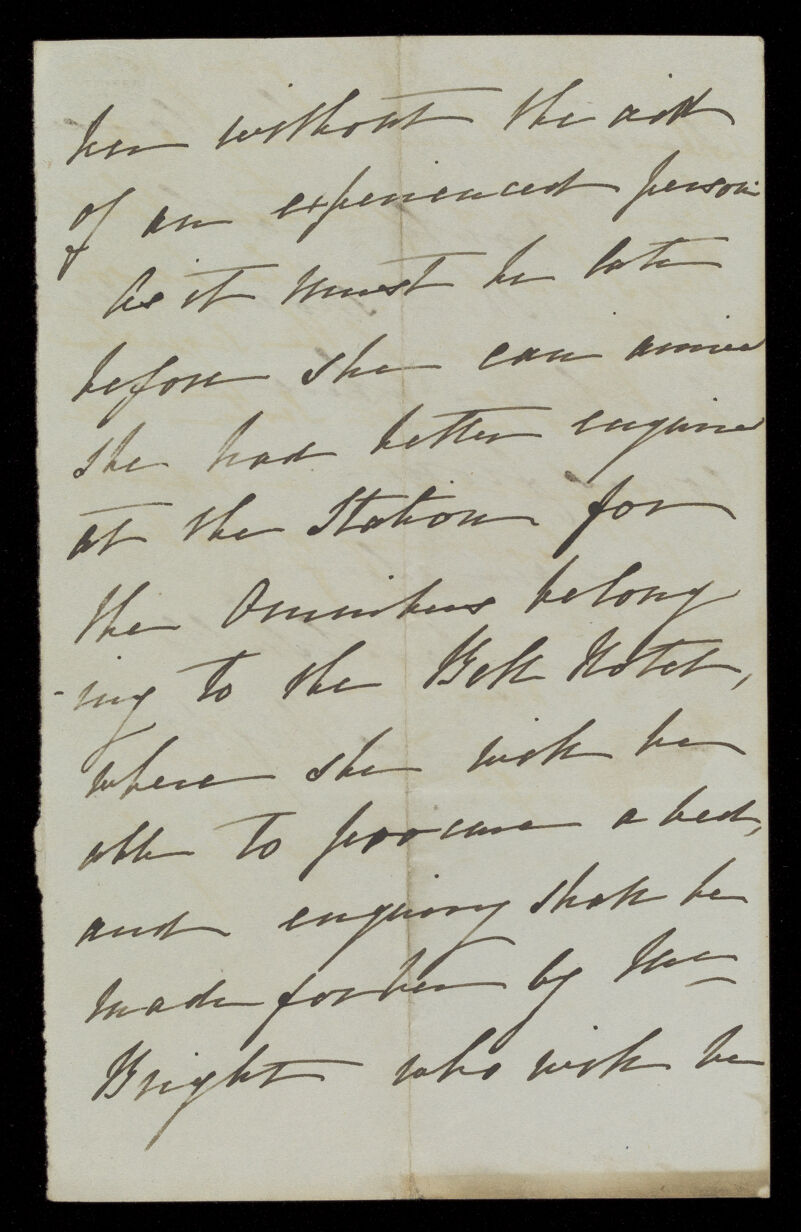 her without the aid
of an experienced person
As it must be late
before she can arrive
she had better enquire
at the Station for
the Omnibus belong
-ing to the Bell Hotel,
where she will be
able to procure a bed,
and enquiry shall be
made for her by
Bright who will be